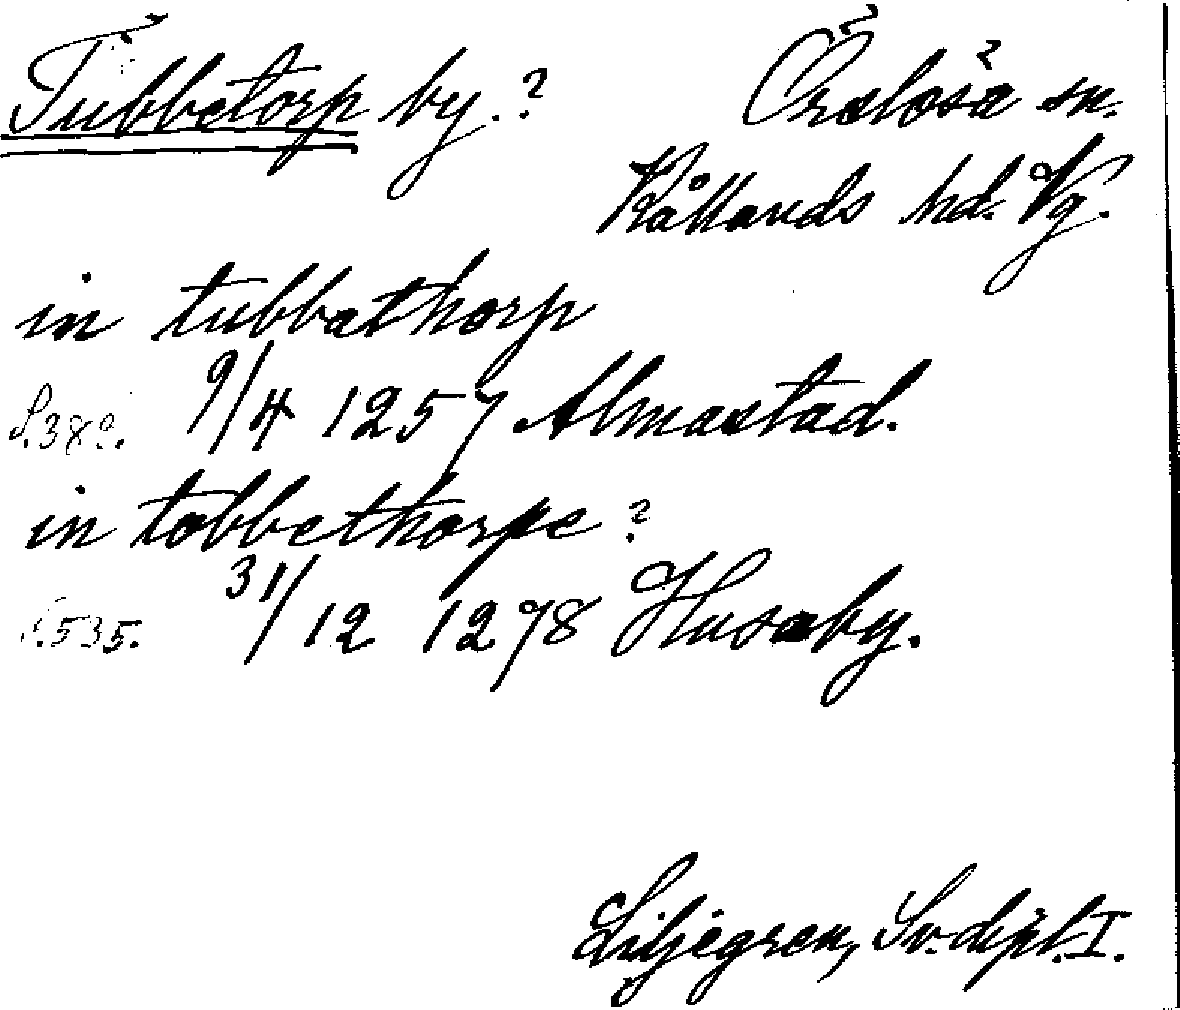 Tubbetorp by.? Örslösa sn.
Kållands hd. Vg.
in tubbathorp
S.389. 9/4 1257 Almastad.
in tobbethorpe?
S.535. 31/12 1278 Husaby.
Liljegren, Sv. dipl. I.